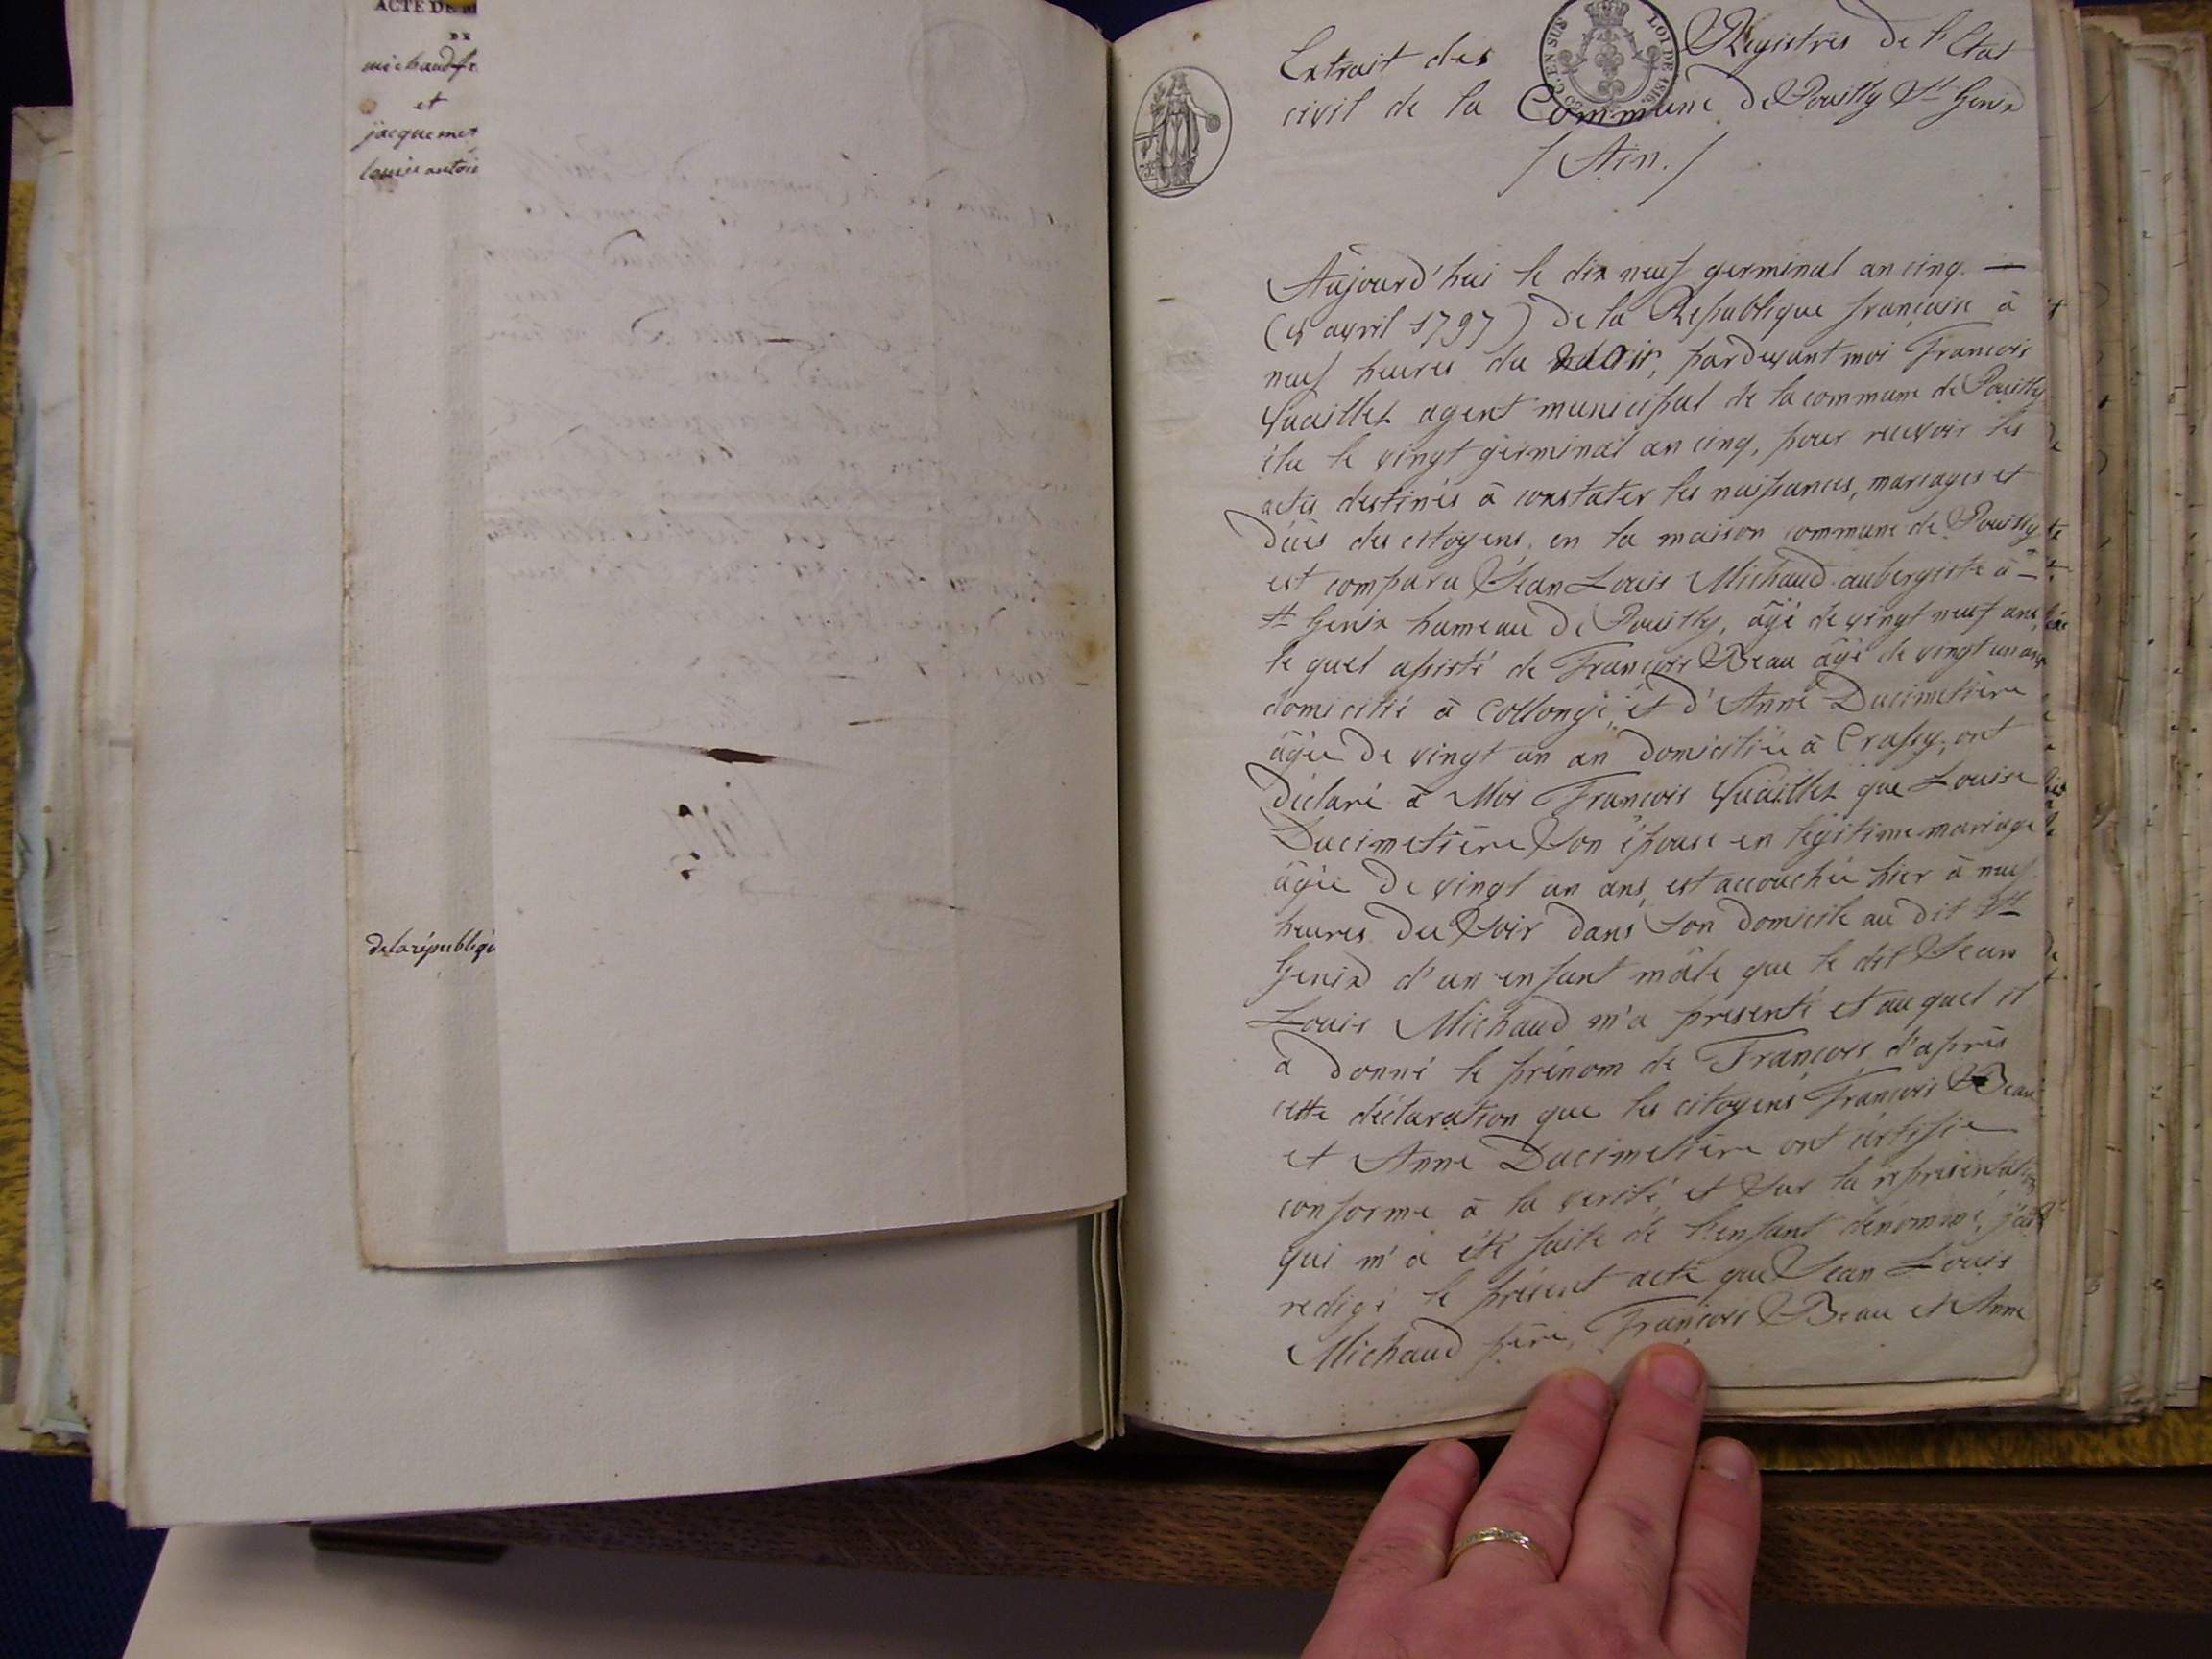 ACTE DE
DE
michaud fr
et
jacquemet
louise antoin
de la républiqu
EN SUS
LOI DE 1816
Extrait des Registres de l'Etat
civil de la Commune de Pouilly St Genix
/ Ain. /
Aujourd'hui le dix neuf germinal an cinq. —
( avril 1797) de la Republique française à
neuf heures du , pardevant moi François
Vuaillet agent municipal de la commune de Pouilly
élu le vingt germinal an cinq, pour recevoir les
actes destinés à constater les naissances, mariages et
décès des citoyens, en la maison commune de Pouilly
est comparu Jean Louis Michaud aubergiste à —
St Genix hameau de Pouilly, âgé de vingt neuf ans,
le quel assisté de François Beau âgé de vingt un ans
domicilié à Collonge, et d'Anne Ducimetière
âgée de vingt un an domiciliée à Crassy, ont
déclaré à Moi François Vuaillet que Louise
Ducimetière son épouse en légitime mariage
âgée de vingt un ans, est accouchée hier à neuf
heures du soir dans son domicile au dit St
Genix d'un enfant mâle que le dit Jean
Louis Michaud m'a présenté et au quel il
a donné le prénom de François d'après
cette déclaration que les citoyens François Beau
et Anne Ducimetière ont certifié
conforme à la verité, et sur la représentation
qui m'a été faite de l'enfant dénommé, j'ai
redigé le présent acte que Jean Louis
Michaud père, François Beau et Anne